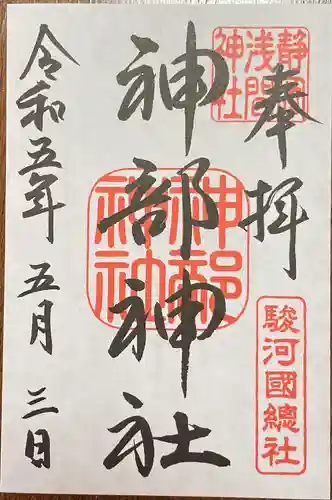 奉拝
静岡浅間神社
駿河國總社
神部神社
神部神社
令和五年五月三日